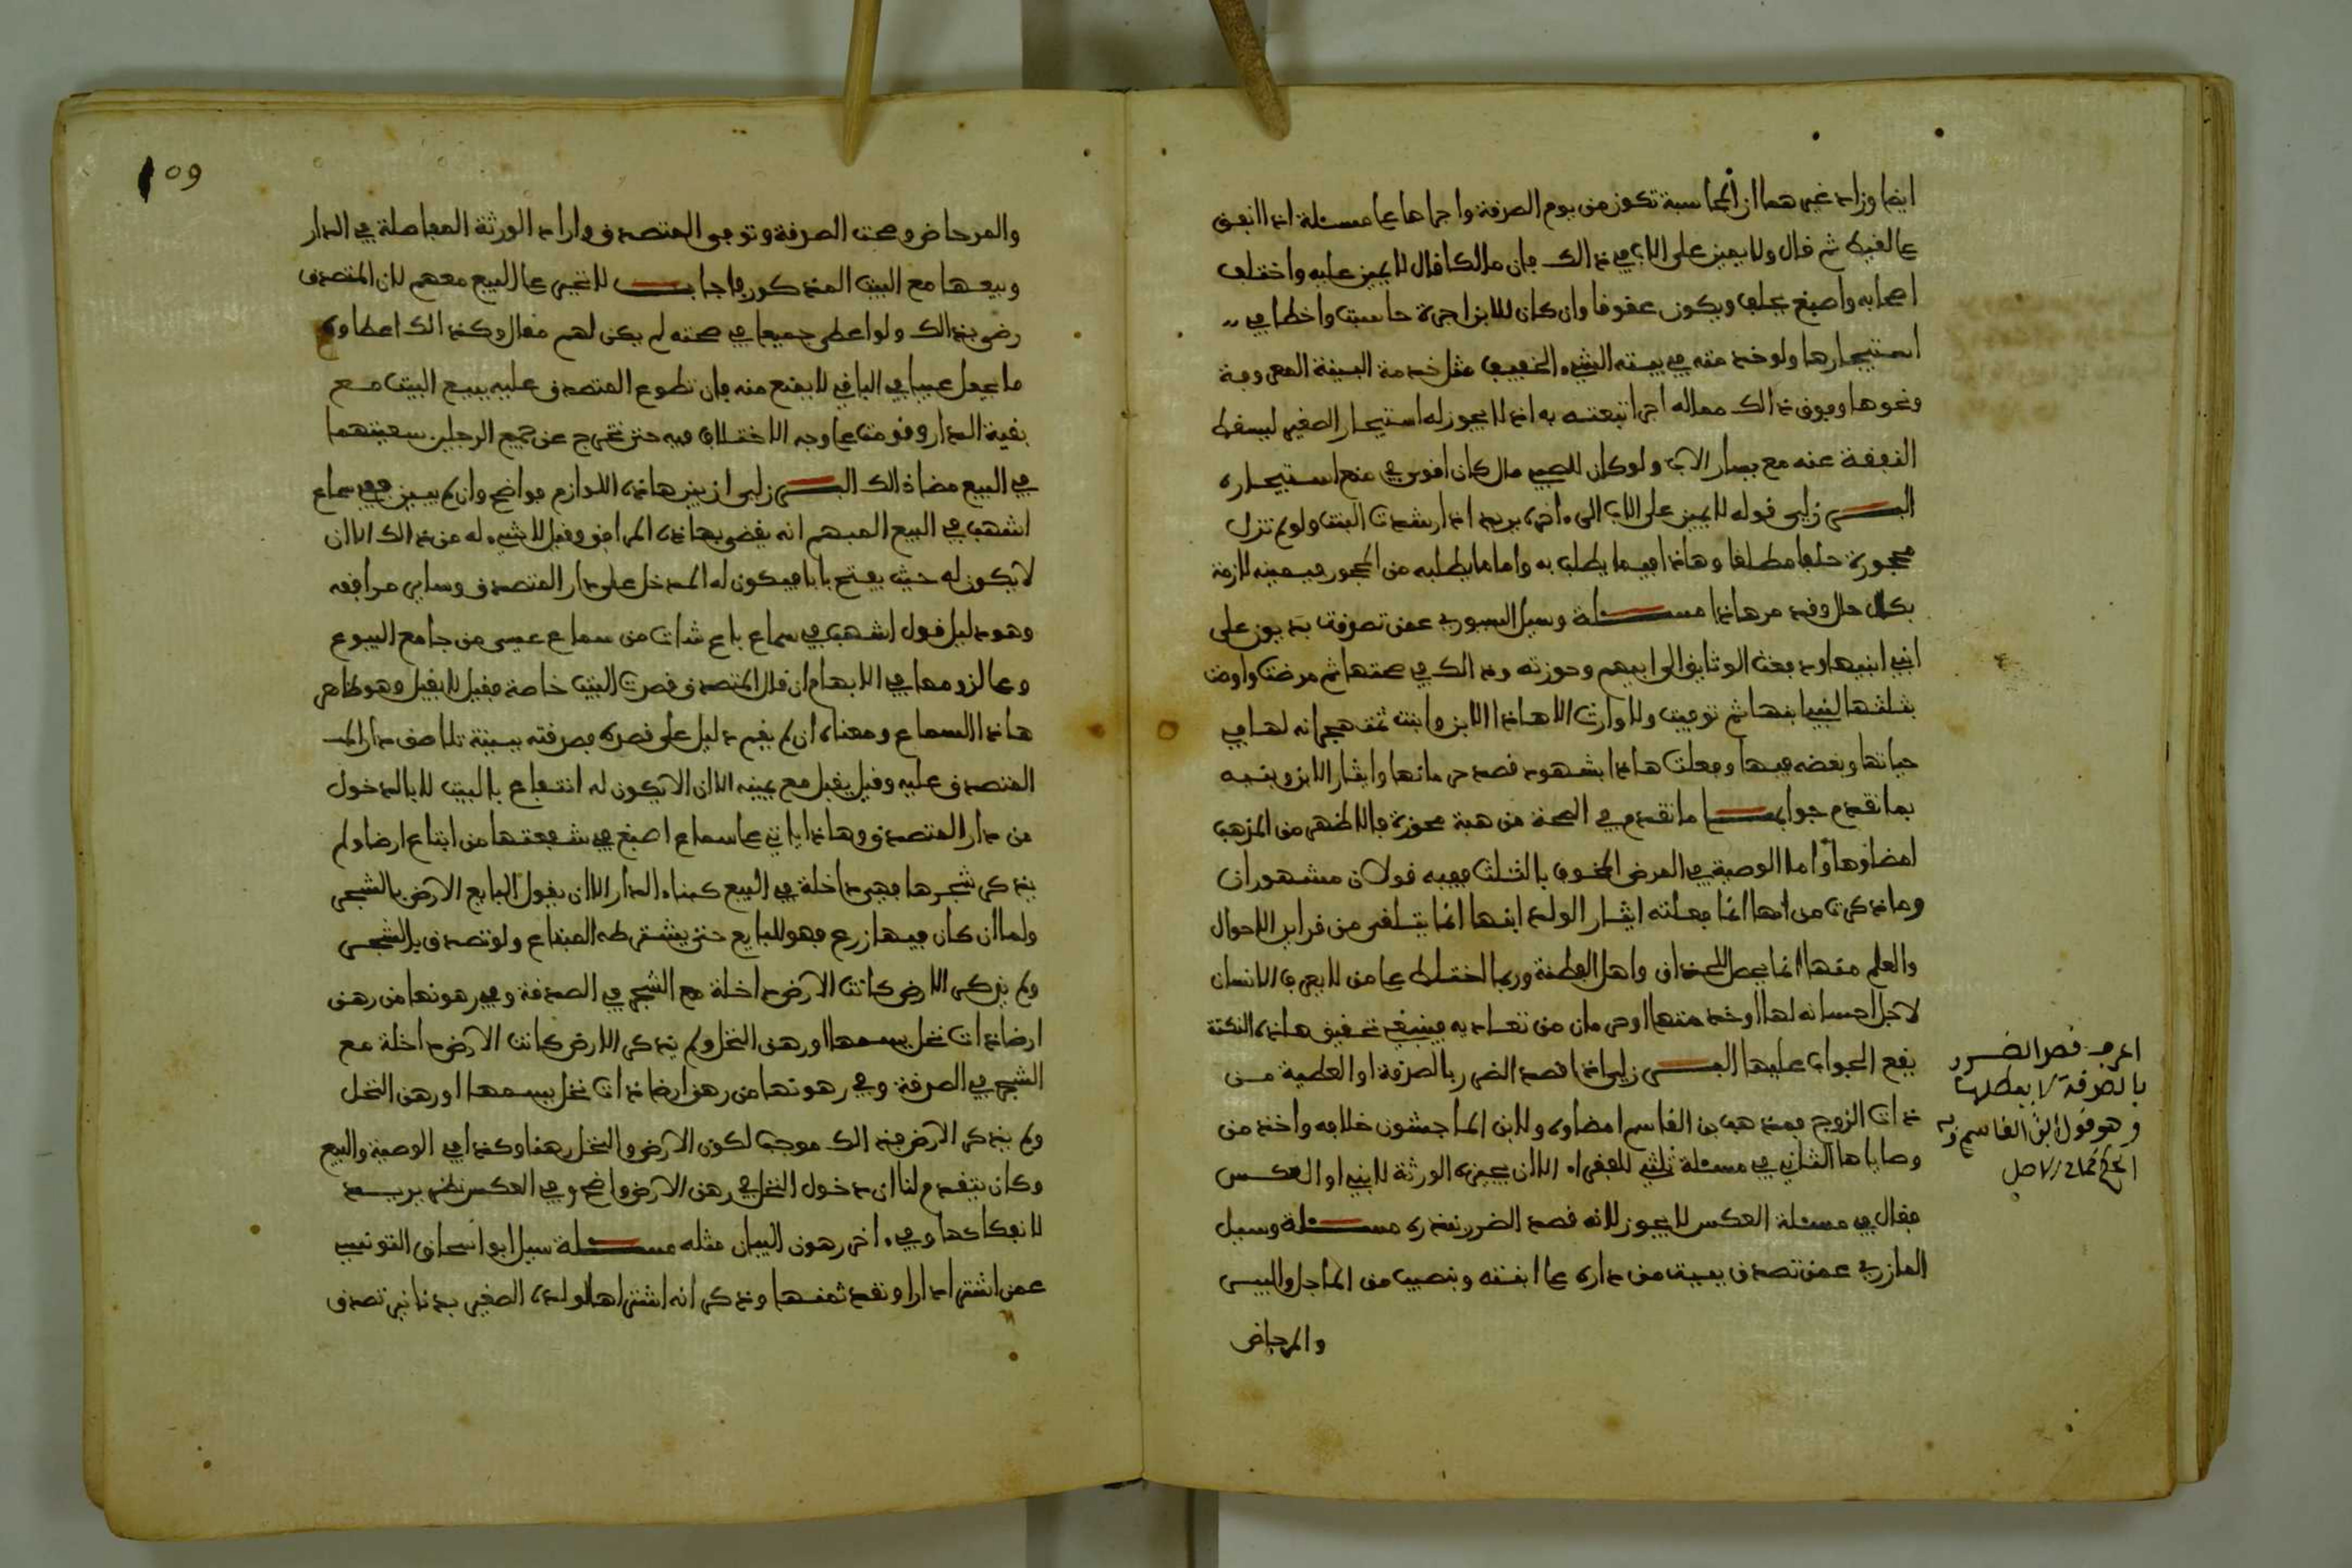 ايضا وزاد غيرهما ان المحاسبة تكون من يوم الصدقة واجراها على مسئلة اذا انفق
على الغيط ثم قال ولا يمين على الاب في ذالك فان مالكا قال لا يمين عليه واختلف
اصحابه واصبغ يحلف ويكون عقوقا وان كان للابن اجرة حاسبت واخطا في
استيجارها ولو خدمته في بيته الشيء الخفيف مثل خدمة البينة المعروفة
ونحوها وفوق ذالك مما له اجر اتبعته به اذ لا يجوز له استيجار الصغير ليسقط
النفقة عنه مع يسار الاب ولو كان للصبي مال كان اقوى في منع استيجاره
البــرزلي قوله لا يمين على الاب الى ءاخره يريد اذا رشدت البنت ولو لم تزل
محجورة حلف مطلقا وهاذا فيما يطلب به واما ما يطلبه من المحجور فيمينه لازمة
بكل حال وقد مر هاذا مســئلة وسيل السيوري عمن تصدقت بديون على
ابني ابنيها ودفعت الوثايق الى ابيهم وحوزته وذالك في صحتها ثم مرضت واوصت
بثلثها لبني ابنها ثم توفيت ولا وارث الا هاذا الابن وابنت تذهجرانه لها في
حياتها وبغضه فيها وفعلت هاذا بشهود قصد حرمانها وايثار الابن وبنيه
بما تقدم جوابهــا ما تقدم في الصحة من هبة محوزة فالاظهر من المذهب
امضاؤها واما الوصية في المرض المخوف بالثلث ففيه قولان مشهوران
وما ذكرت من انها انما فعلته ايثار الولد ابنها انما يتلقى من قراين الاحوال
والعلم منها انما يحصل للحذاق واهل الفطنة وربما اختلط على من لا يعرف الانسان
لاجل احسانه لها او خدمتها او حرمان من تعاديه فينبغي تحقيق هاذه النكتة
يقع الجواب عليها البــرزلي اذا قصد الضرر بالصدقة او العطية مــن
ذات الزوج فمذهب بن القاسم امضاوه ولابن الماجشون خلافه واخذ من
وصاياها الثاني في مسئلة ثلثي للفقراء الا ان يجيزه الورثة لابني او العكس
فقال في مسئلة العكس لا يجوز لانه قصد الضرر بنذره مســئلة وسيل
المازري عمن تصدق ببيت من داره على ابنته وبنصيب من الماجل والبيس
والمرحاض
اعرف قصد الضرر
بالصدقة لا يبطلها
وهو قول ابن القاسم وبه
الحكم كما في الاصل
109
والمرحاض وصحت الصدقة وتوفي المتصدق واراد الورثة المفاصلة في الدار
وبيعها مع البيت المذكور فاجابــ لا تجبر على البيع معهم لان المتصدق
رضي بذالك ولو اعطى جميعا في صحته لم يكن لهم مقال وكذالك اعطاوه
ما يجعل عيبا في الباقي لا يمنع منه فان تطوع المتصدق عليه ببيع البيت مع
بقية الدار وقومت على وجه الاختلاف فيه حتى تخرج عن جمع الرجلين سعيتهما
في البيع مضا ذالك البــرزلي ان بين هاذه اللوازم فواضح وان لم يبين ففي سماع
اشهب في البيع المبهم انه يقضى بهاذه المرافق وقيل لا شيء له من ذالك الا ان
لا يكون له حيث يفتح بابا فيكون له المدخل على دار المتصدق وساير مرافقه
وهو دليل قول اشهب في سماع باع شات من سماع عيسى من جامع البيوع
وعلى لزومها في الابهام ان قال المتصدق قصرت البيت خاصة فقيل لا يقبل وهو ظاهر
هاذا السماع ومعناه ان لم يقم دليل على قصره بصدقته ببينة تلاصق دار الــ
المتصدق عليه وقيل يقبل مع يمينه الا ان لا يكون له انتفاع بالبيت الا بالدخول
من دار المتصدق وهاذا ياتي على سماع اصبغ في شفعتها من ابتاع ارضا ولم
يذكر شجرها فهي داخلة في البيع كبناء الدار الا ان يقول البايع الارض بالشجر
ولما ان كان فيها زرع فهو للبايع حتى يشترطه المبتاع ولو تصدق بالشجر
ولم يذكر الارض كانت الارض داخلة مع الشجر في الصدقة وفي رهونها من رهن
ارضا ذات نخل يسمها او رهن النخل ولم يذكر الارض كانت الارض داخلة مع
الشجر في الصدقة وفي رهونها من رهن ارضا ذات نخل يسمها او رهن النخل
ولم يذكر الارض فذالك موجب لكون الارض والنخل رهنا وكذا في الوصية والبيع
وكان يتقدم لنا ان دخول النخل في رهن الارض واضح وفي العكس نظر يريــد
لانفكاكها وفي ءاخر رهون البيان مثله مســئلة سيل ابو اسحاق التونسي
عمن اشترى دارا ونقد ثمنها وذكر انه اشتراها لولده الصغير بدنانير تصدق